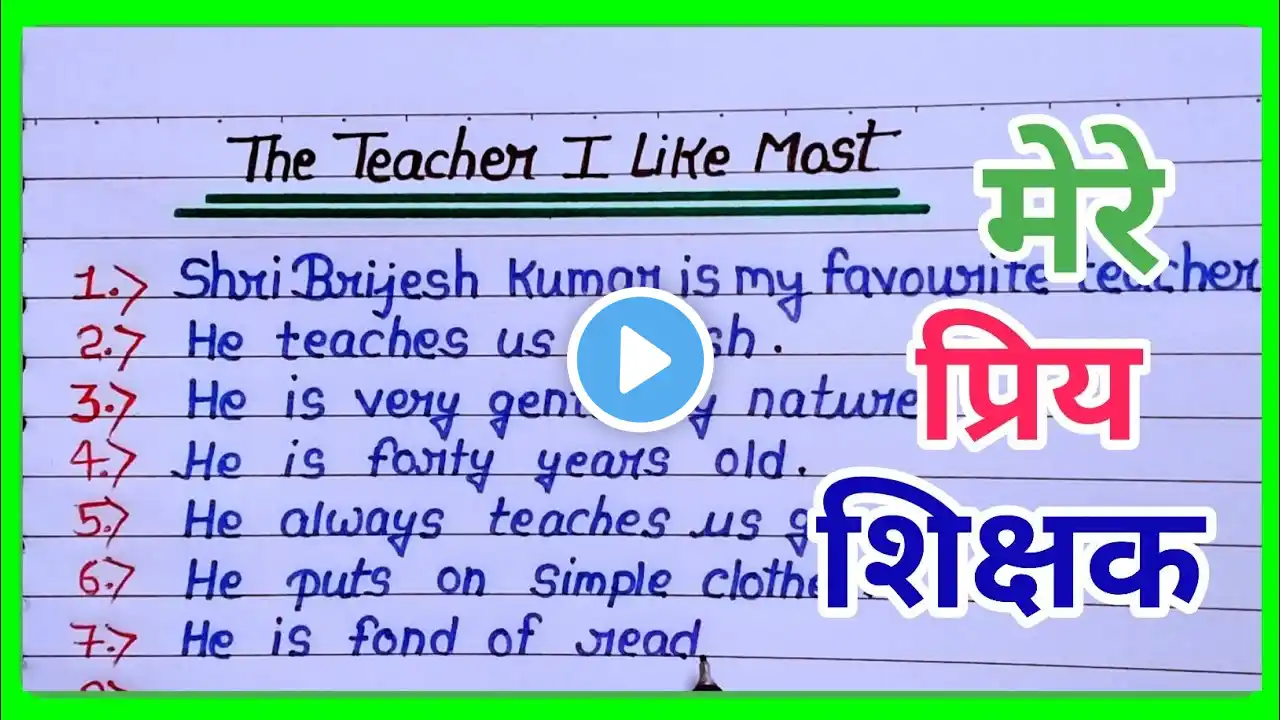 The Teacher I Like Most
1.> Shri Brijesh Kumar is my favourite teacher
2.> He teaches us
3.> He is very nature
4.> He is forty years old.
5.> He always teaches us
6.> He puts on simple
7.> He is fond of read
मेरे
प्रिय
शिक्षक